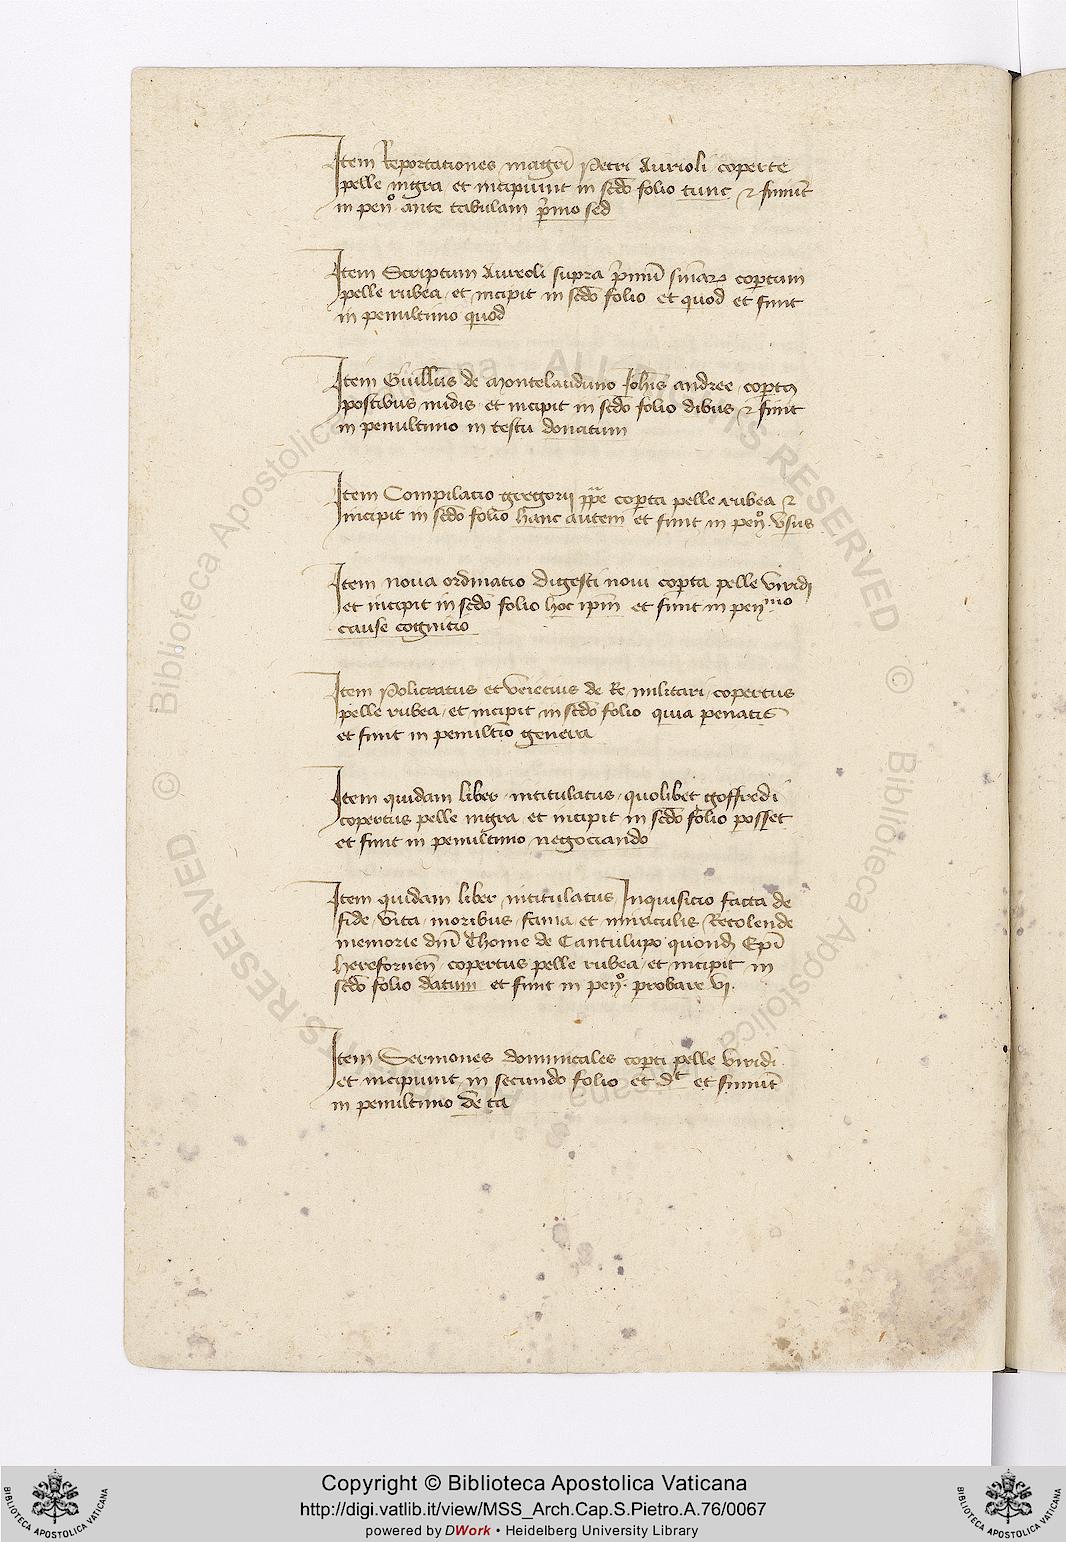 Item Reportationes magrī Petri Aurioli coperte
pelle nigra et incipiunt in scdō folio tunc et finiūt
in penº ante tabulam p̄mo sed
Item Scriptum Aureoli supra p̄mū sniarꝝ copertum
pelle rubea et incipit in scdō folio et quod et finit
in penultimo quod
Item Guillūs de Montelauduno Johīs andree
postibus nudis et incipit in scdō folio dibus et finit
in penultimo in testu donatum
Item Compilacio gregorii ppe coperta pelle rubea et
incipit in scdō folio hanc autem et finit in penº vsus
Item noua ordinatio Digesti noui coperta pelle viridi
et incipit in scdō folio hoc ipm̄ et finit in penmo
cause cognitio
Item Policratus et vegecius de Re militari copertus
pelle rubea et incipit in scdō folio quia penatis
et finit in penultīo genera
Item quidam liber intitulatus quolibet goffredi
copertus pelle nigra et incipit in scdō folio posset
et finit in penultimo negociando
Item quidam liber intitulatus Inquisicio facta de
fide vita moribus fama et miraculis Recolende
memorie dnī Thome de Cantulupo quondā Epī
herefornen̄ copertus pelle rubea et incipit in
scdō folio datum et finit in penº probare vi.
Item Sermones dominicales coperti pelle viridi
et incipiunt in secundo folio et dt et finiūt
in penultimo de ta
© Biblioteca Apostolica Vaticana ALL RIGHTS RESERVED
© Biblioteca Apostolica Vaticana ALL RIGHTS RESERVED
BIBLIOTECA APOSTOLICA VATICANA
Copyright © Biblioteca Apostolica Vaticana
http://digi.vatlib.it/view/MSS_Arch.Cap.S.Pietro.A.76/0067
powered by DWork • Heidelberg University Library
BIBLIOTECA APOSTOLICA VATICANA